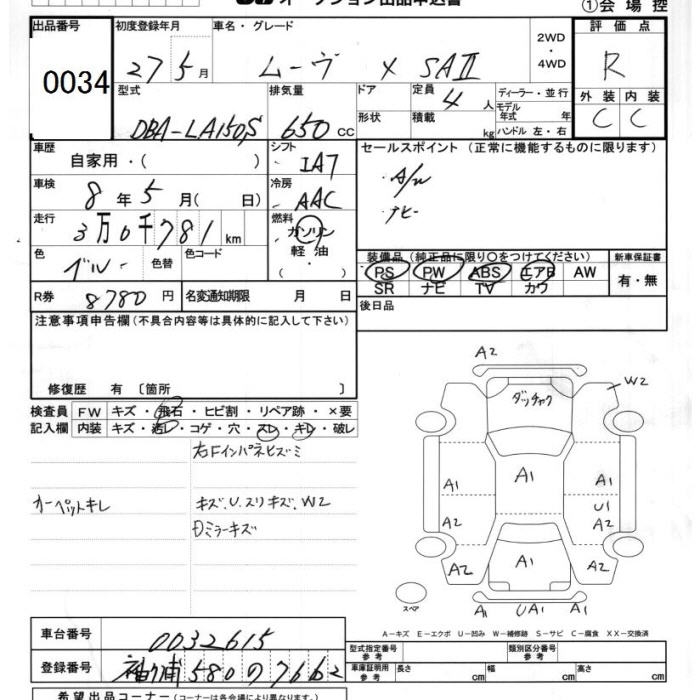 オークション出品申込書
①会場控
出品番号 初度登録年月 車名・グレード 2WD・4WD 評価点
0034 27 5月 ムーヴ X SAⅡ R
型式 排気量 ドア 定員 ディーラー・並行 外装 内装
DBA-LA150S 650cc 4人 モデル年式 年 C C
形状 積載 kg ハンドル 左・右
車歴 シフト セールスポイント (正常に機能するものに限ります)
自家用・( ) IA7
・A/W
車検 冷房
8年5月(日) AAC
・ナビー
走行 燃料
3万0千781km ガソリン・軽油・
色 色替 色コード 装備品 (純正品に限り〇をつけてください) 新車保証書
PS PW ABS エアB AW 有・無
SR ナビ TV カワ
R券 8780円 名変通知期限 月 日 後日品
注意事項申告欄(不具合内容等は具体的に記入して下さい)
修復歴 有〔箇所 〕
検査員 FW キズ・飛石・ヒビ割・リペア跡・×要
記入欄 内装 キズ・汚レ・コゲ・穴・スレ・キレ・破レ
右Fインパネヒズミ
カーペットキレ キズ、U、スリキズ、W2
Dミラーキズ
A2
W2
ダッチャク
A1
A1 A1 A1
U1
A2 A2
A2 A1 A2
スペア
A1 UA1 A1
A-キズ E-エクボ U-凹み W-補修跡 S-サビ C-腐食 XX-交換済
車台番号 0032615
型式指定番号 参考 類別区分番号 参考
登録番号 袖ヶ浦 580 の 7662
車庫証明用 参考 長さ cm 幅 cm 高さ cm
希望出品コーナー(各会場により異なります。)